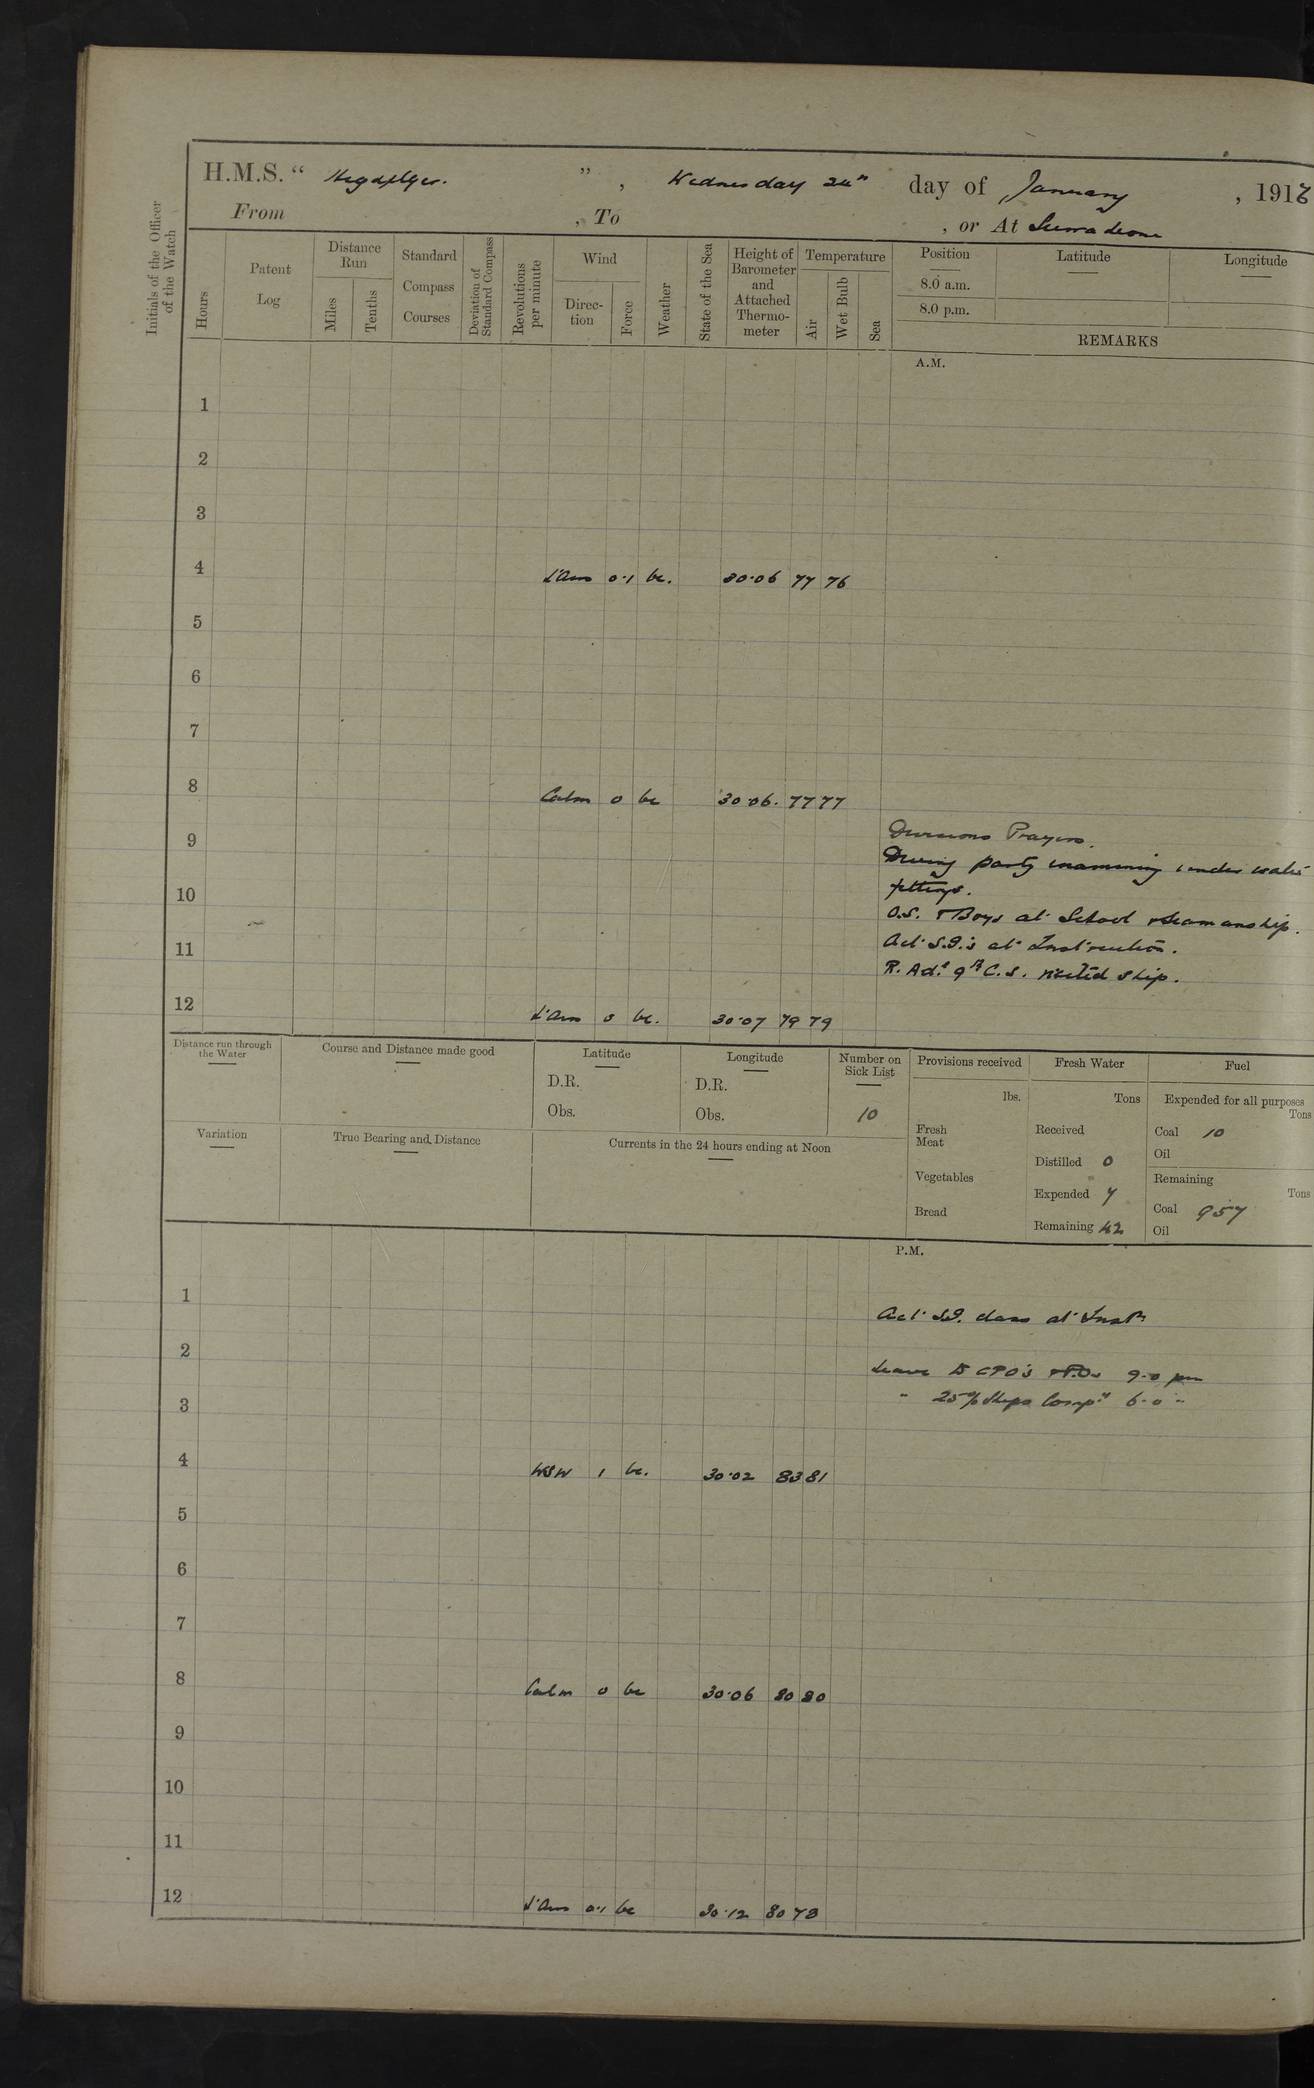 H.M.S. “ Highflyer. ” , Wednesday 24th day of January , 191
From , To , or At Sierra Leone
Initials of the Officer of the Watch
Hours
Patent Log
Distance Run
Miles
Tenths
Standard Compass Courses
Deviation of Standard Compass
Revolutions per minute
Wind
Direc- tion
Force
Weather
State of the Sea
Height of Barometer and Attached Thermo- meter
Temperature
Air
Wet Bulb
Sea
Position
8.0 a.m.
8.0 p.m.
Latitude
Longitude
REMARKS
A.M.
1
2
3
4 L'Airs 0·1 bc. 30·06 77 76
5
6
7
8 Calm 0 bc 30·06. 77 77
9 Divisions Prayers.
Diving party examining under water
10 fittings.
O.S. & Boys at School & Seamanship.
11 Act. S.G.'s at Instruction.
R. Ad.l 9th C.S. visited ship.
12 L'Airs 0 bc. 30·07 79 79
Distance run through the Water
Course and Distance made good
Latitude
D.R.
Obs.
Longitude
D.R.
Obs.
Number on Sick List
10
Provisions received
lbs.
Fresh Meat
Vegetables
Bread
Fresh Water
Tons
Received
Distilled 0
Expended 7
Remaining 42
Fuel
Expended for all purposes
Tons
Coal 10
Oil
Remaining
Tons
Coal 957
Oil
Variation
True Bearing and Distance
Currents in the 24 hours ending at Noon
P.M.
1 Act. S.G. class at Instn.
2 Leave to CPO's & P.Os 9·0 pm
3 " 25% Ships Compy 6·0 "
4 WSW 1 bc. 30·02 83 81
5
6
7
8 Calm 0 bc 30·06 80 80
9
10
11
12 L'Airs 0·1 bc 30·12 80 78